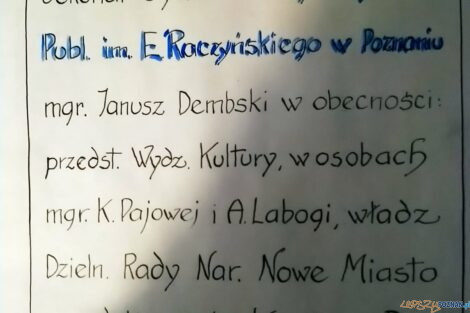 Publ. im. E. Raczyńskiego w Poznaniu
mgr. Janusz Dembski w obecności:
przedst. Wydz. Kultury, w osobach
mgr. K. Pajowej i A. Labogi, władz
Dzieln. Rady Nar. Nowe Miasto